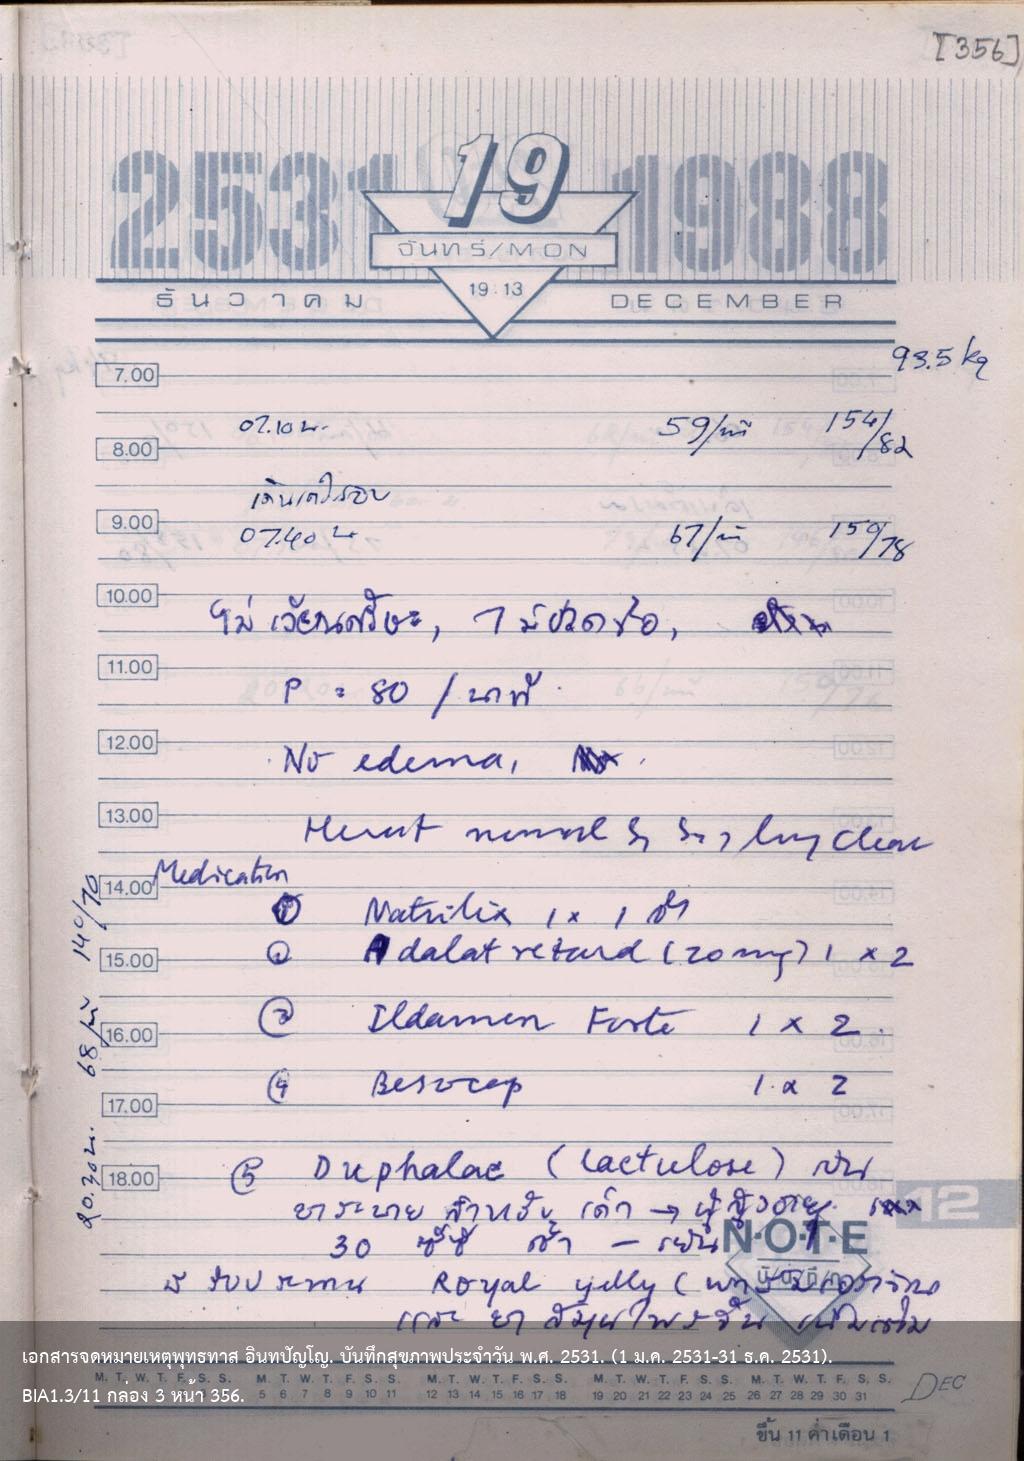 [356]
2531 1988
19
จันทร์/MON
19:13
ธันวาคม DECEMBER
93.5 kg
7.00
07.10 น. 59/นาที 154/82
8.00
เดินครบรอบ
9.00
07.40 น 67/นาที 150/78
10.00
ไม่เวียนศรีษะ, ไม่ปวดข้อ,
11.00
P = 80 / นาที
12.00
No edema,
13.00
Heart normal S₁ S₂, lung clear
Medication
14.00
① Natrilix 1 x 1 เช้า
15.00
② Adalat retard (20 mg) 1 x 2
16.00
③ Ildamen Forte 1 x 2
17.00
④ Besocap 1 x 2
18.00
⑤ Duphalac (lactulose) เป็น
ยาระบาย สำหรับ เด็ก → ผู้สูงอายุ
30 ซีซี เช้า - เย็น
รับประทาน Royal yelly (
และ ยา สมุนไพรอื่น เพิ่มเติม
20.20 น. 68/นาที 140/70
12
N·O·T·E
บันทึก
เอกสารจดหมายเหตุพุทธทาส อินทปัญโญ. บันทึกสุขภาพประจำวัน พ.ศ. 2531. (1 ม.ค. 2531-31 ธ.ค. 2531).
M. T. W. T. F. S. S. M. T. W. T. F. S. S. M. T. W. T. F. S. S. M. T. W. T. F. S. S. M. T. W. T. F. S. S.
1 2 3 4 5 6 7 8 9 10 11 12 13 14 15 16 17 18 19 20 21 22 23 24 25 26 27 28 29 30 31
BIA1.3/11 กล่อง 3 หน้า 356.
DEC
ขึ้น 11 ค่ำเดือน 1